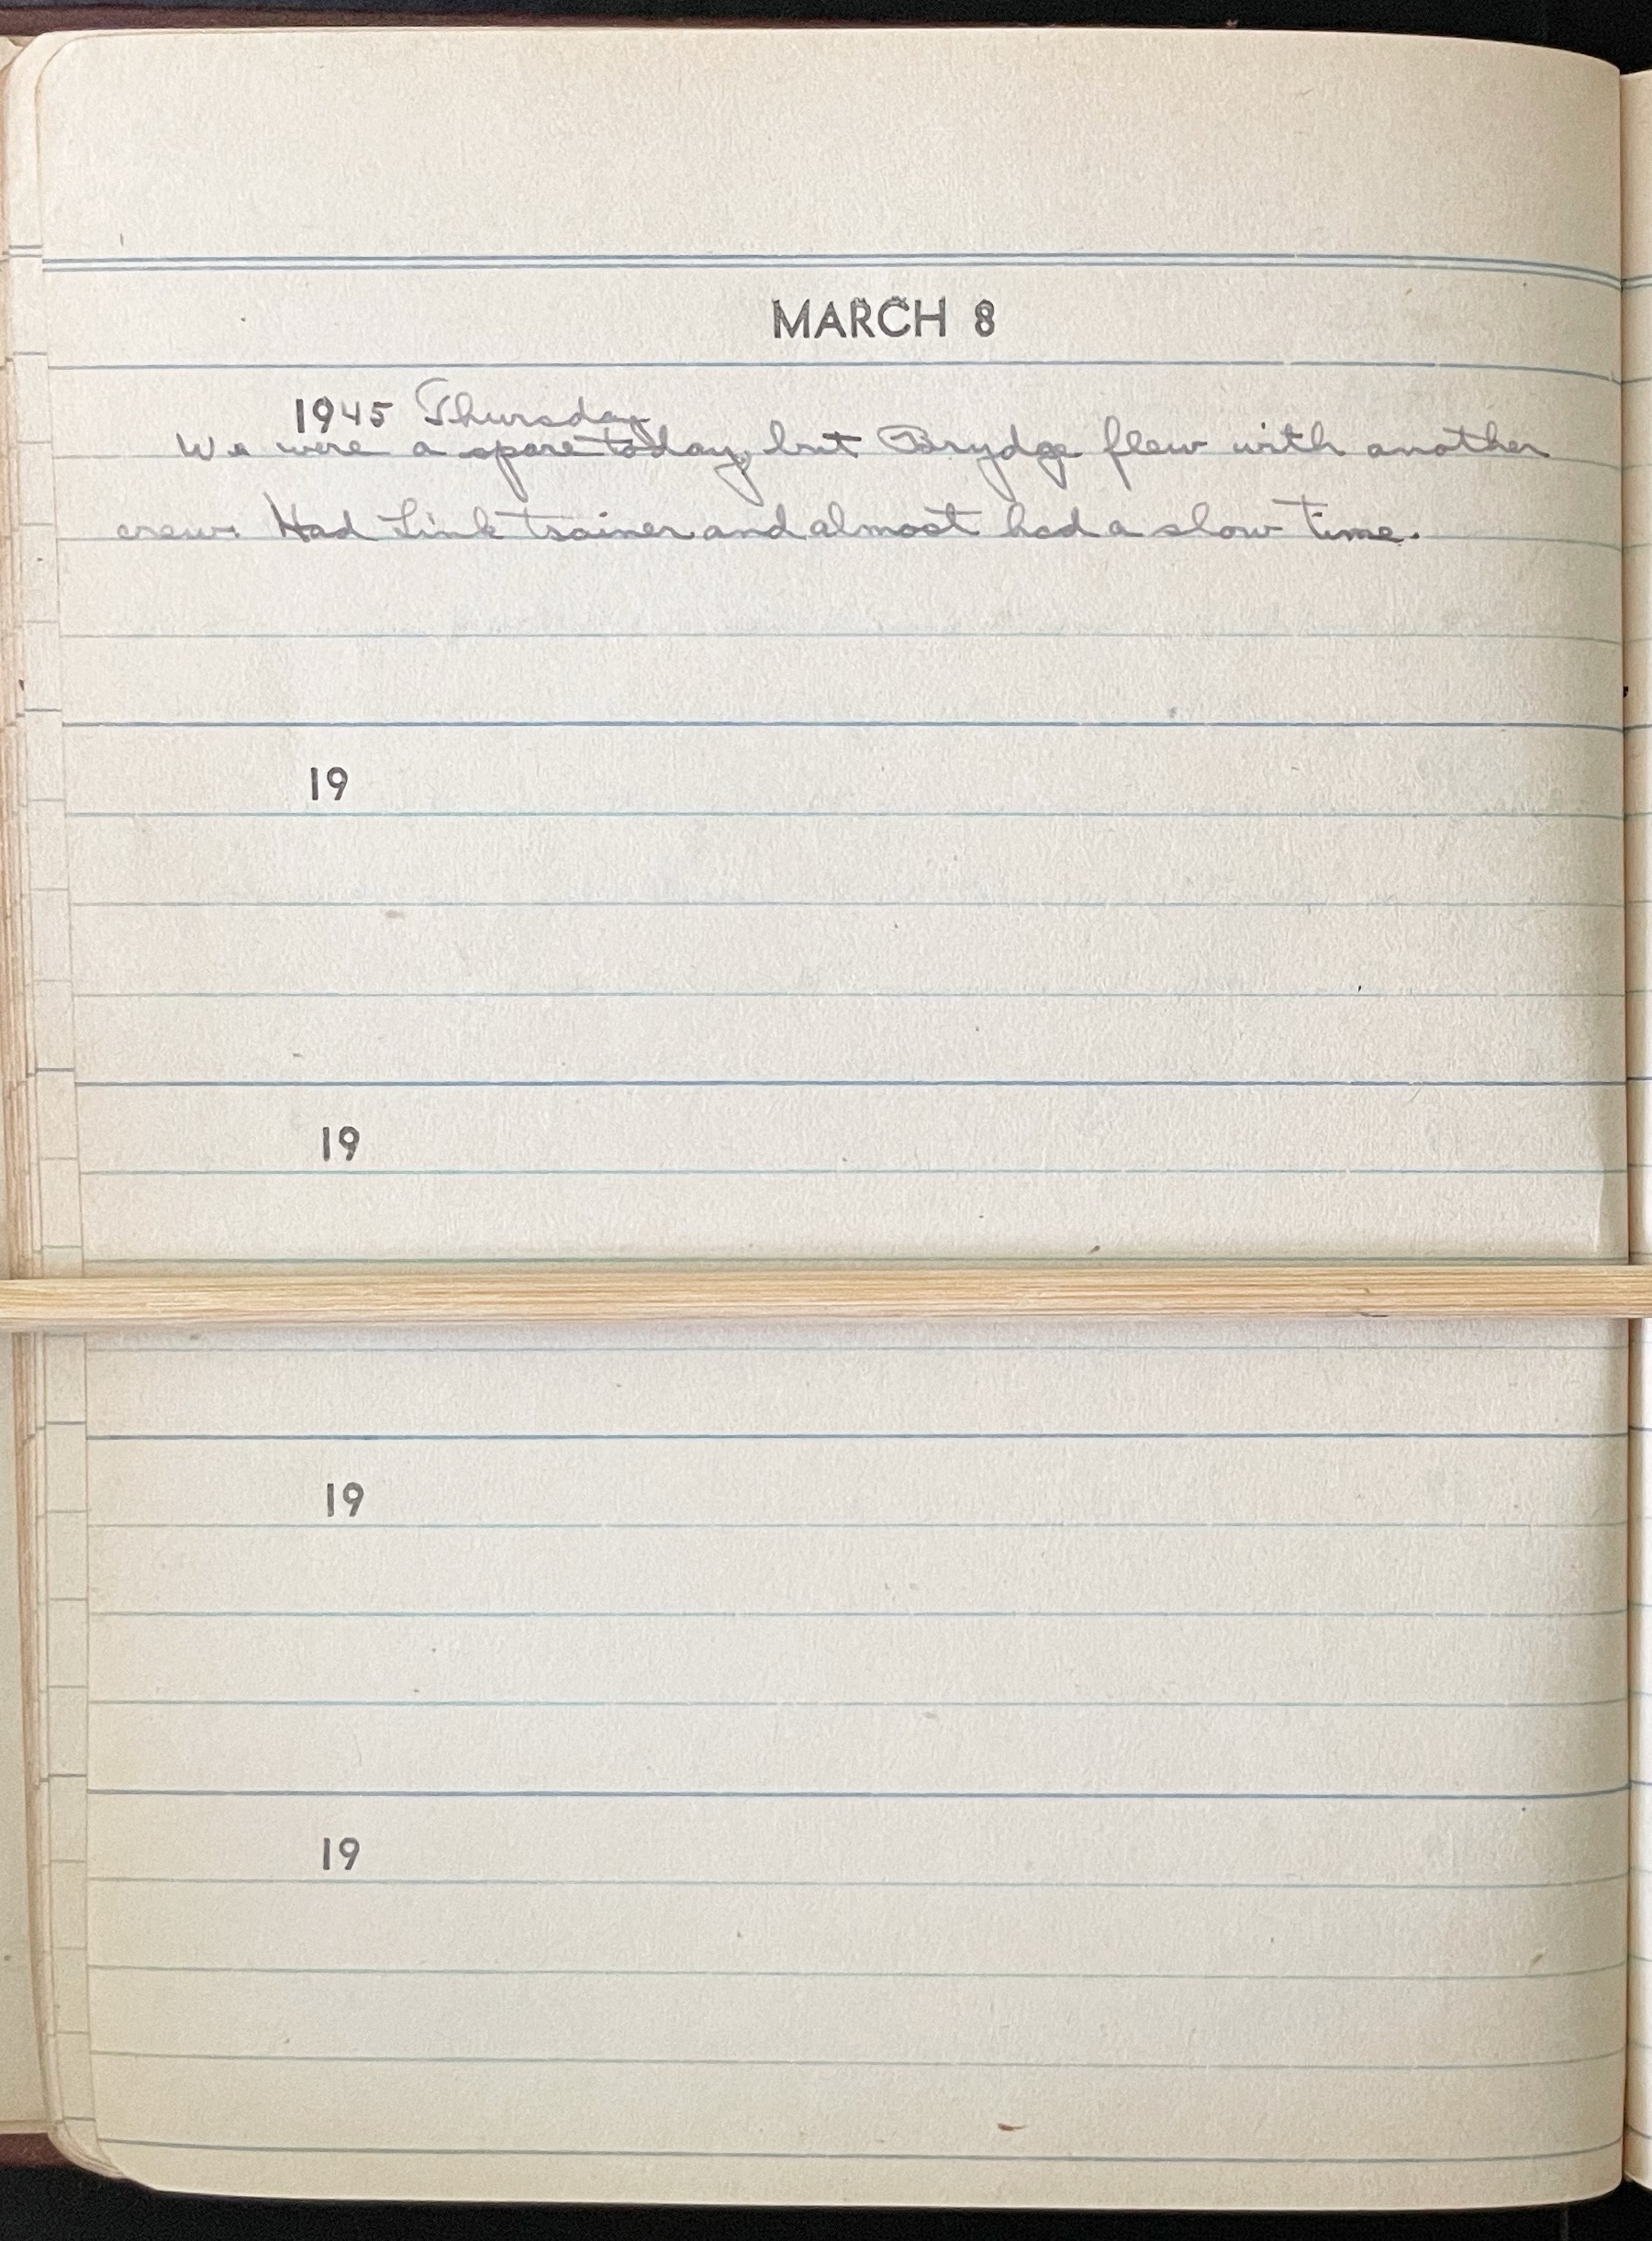 MARCH 8
1945 Thursday
We were a spare today, but Brydge flew with another
crew. Had Link trainer and almost had a slow time.
19
19
19
19